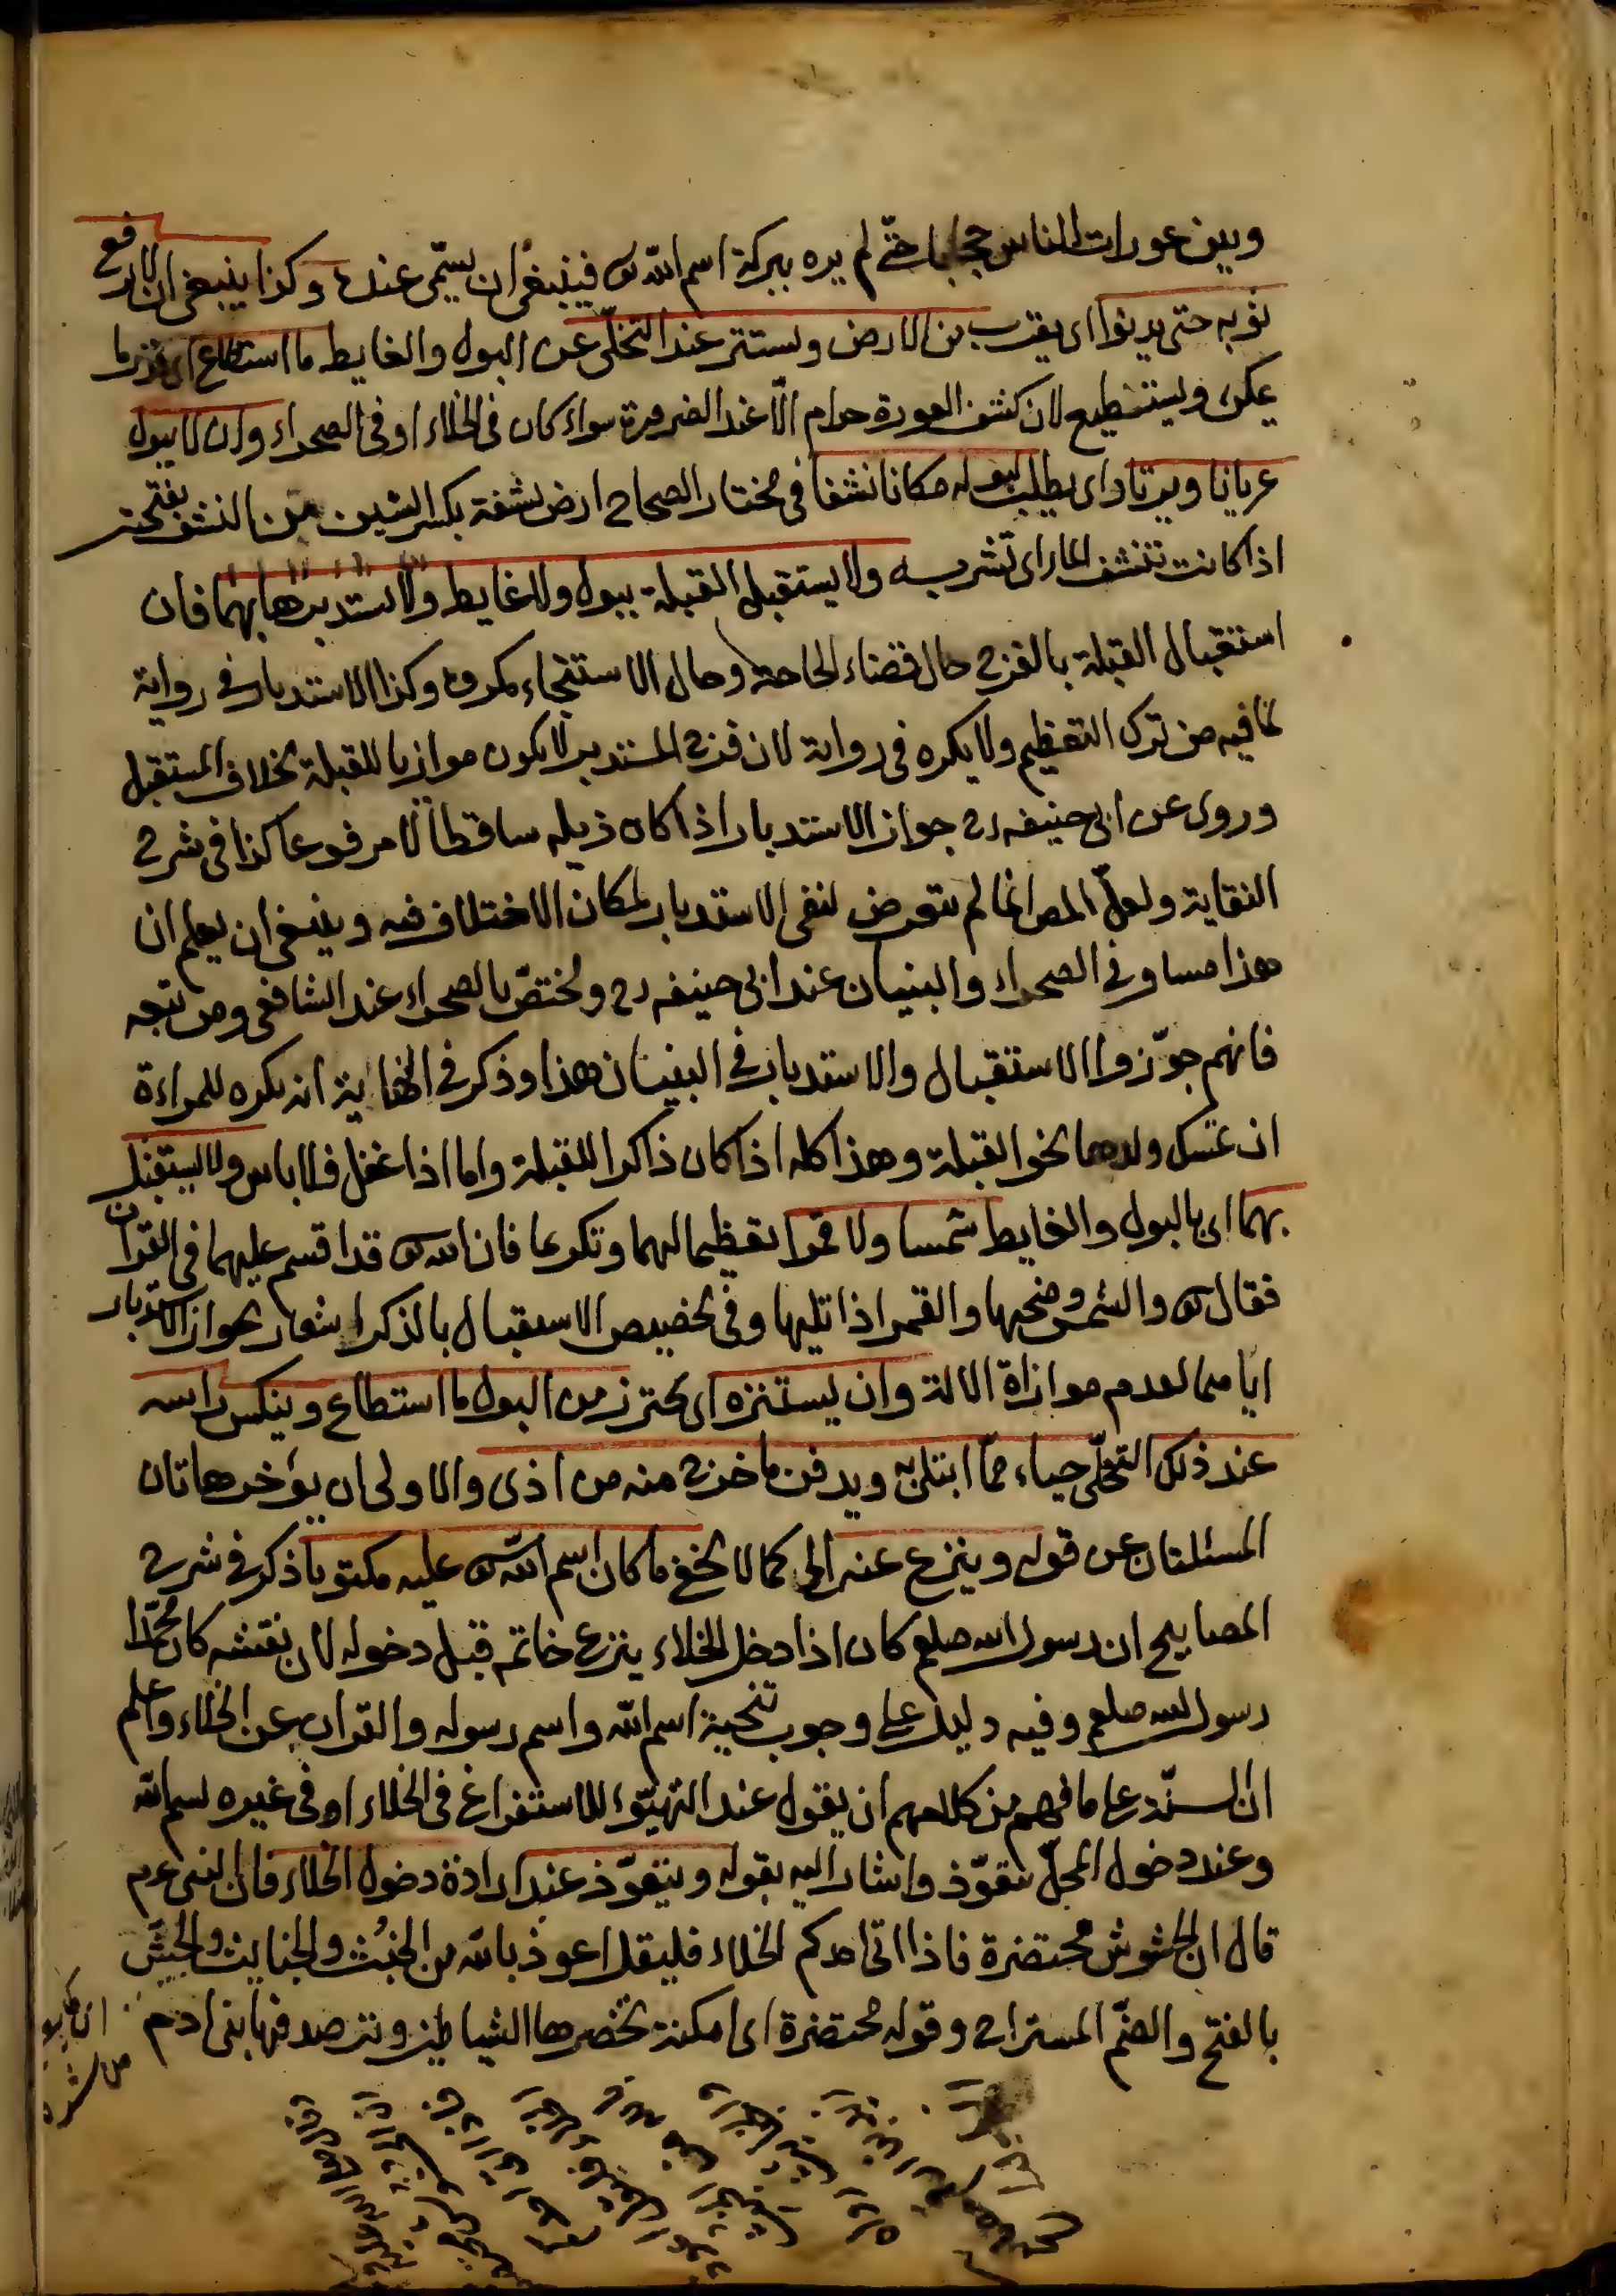 وبين عورات الناس حجابا حتّى لم يره ببركة اسم الله تع فينبغى ان يسمّى عنده وكذا ينبغى ان لا يرفع
ثوبه حتى يدنوا اى يقرب من الارض ويستتر عند التخلّى عن البول والغايط ما استطاع اى قدر ما
يمكن ويستطيع لان كشف العورة حرام الّا عند الضرورة سواء كان فى الخلاء او فى الصحراء وان لا يبول
عريانا ويرتاد اى يطلب لبوله مكانا نشفا فى مختار الصحاح ارض نشفة بكسر الشين من النشف بفتحتين
اذا كانت تنشف الماء اى تشربه ولا يستقبل القبلة ببول ولا غايط ولا يستدبرها بهما فان
استقبال القبلة بالفرج حال قضاء الحاجة وحال الاستنجاء مكروه وكذا الاستدبار فى رواية
لما فيه من ترك التعظيم ولا يكره فى رواية لان فرج المستدبر لا يكون موازيا للقبلة بخلاف المستقبل
وروى عن ابى حنيفه رح جواز الاستدبار اذا كان ذيله ساقطا لا مرفوعا كذا فى شرح
النقاية ولعلّ المص انما لم يتعرض لنفى الاستدبار لمكان الاختلاف فيه وينبغى ان يعلم ان
هذا مساو فى الصحراء والبنيان عند ابى حنيفه رح ويختصّ بالصحراء عند الشافعى ومن تبعه
فانهم جوّزوا الاستقبال والاستدبار فى البنيان هذا وذكر فى النهاية انه يكره للمراءة
ان تمسك ولدها نحو القبلة وهذا كله اذا كان ذاكرا للقبلة واما اذا غفل فلا باس ولا يستقبل
بهما اى بالبول والغايط شمسا ولا قمرا تعظيما لهما وتكريما فان الله تع قد اقسم عليهما فى القرآن
فقال تع والشمس وضحيها والقمر اذا تليها وفى تخصيص الاستقبال بالذكر اشعار بجواز الاستدبار
اياهما لعدم موازاة الالة وان يستنزه اى يحترز من البول ما استطاع وينكس راسه
عند ذلك التخلّى حياء ممّا ابتلى به ويدفن ما خرج منه من اذى والاولى ان يؤخر هاتان
المسئلتان عن قوله وينزع عنه الى كما لا يخفى ما كان اسم الله تع عليه مكتوبا ذكر فى شرح
المصابيح ان رسول الله صلعم كان اذا دخل الخلاء ينزع خاتمه قبل دخوله لان نقشه كان محمّدا
رسول الله صلعم وفيه دليل على وجوب تنحية اسم الله واسم رسوله والقران عن الخلاء واعلم
ان السنّة على ما فهم من كلامهم ان يقول عند التهيّؤ للاستفراغ فى الخلاء او فى غيره بسم الله
وعند دخول المحلّ يتعوّذ واشار اليه بقوله ويتعوّذ عند ارادة دخول الخلاء فان النبى عم
قال ان الحشوش محتضرة فاذا اتى احدكم الخلاء فليقل اعوذ بالله من الخبُث والخبايث والحشّ
بالفتح والضّم المستراح وقوله محتضرة اى امكنة تحضرها الشياطين وترصد فيها بنى ادم